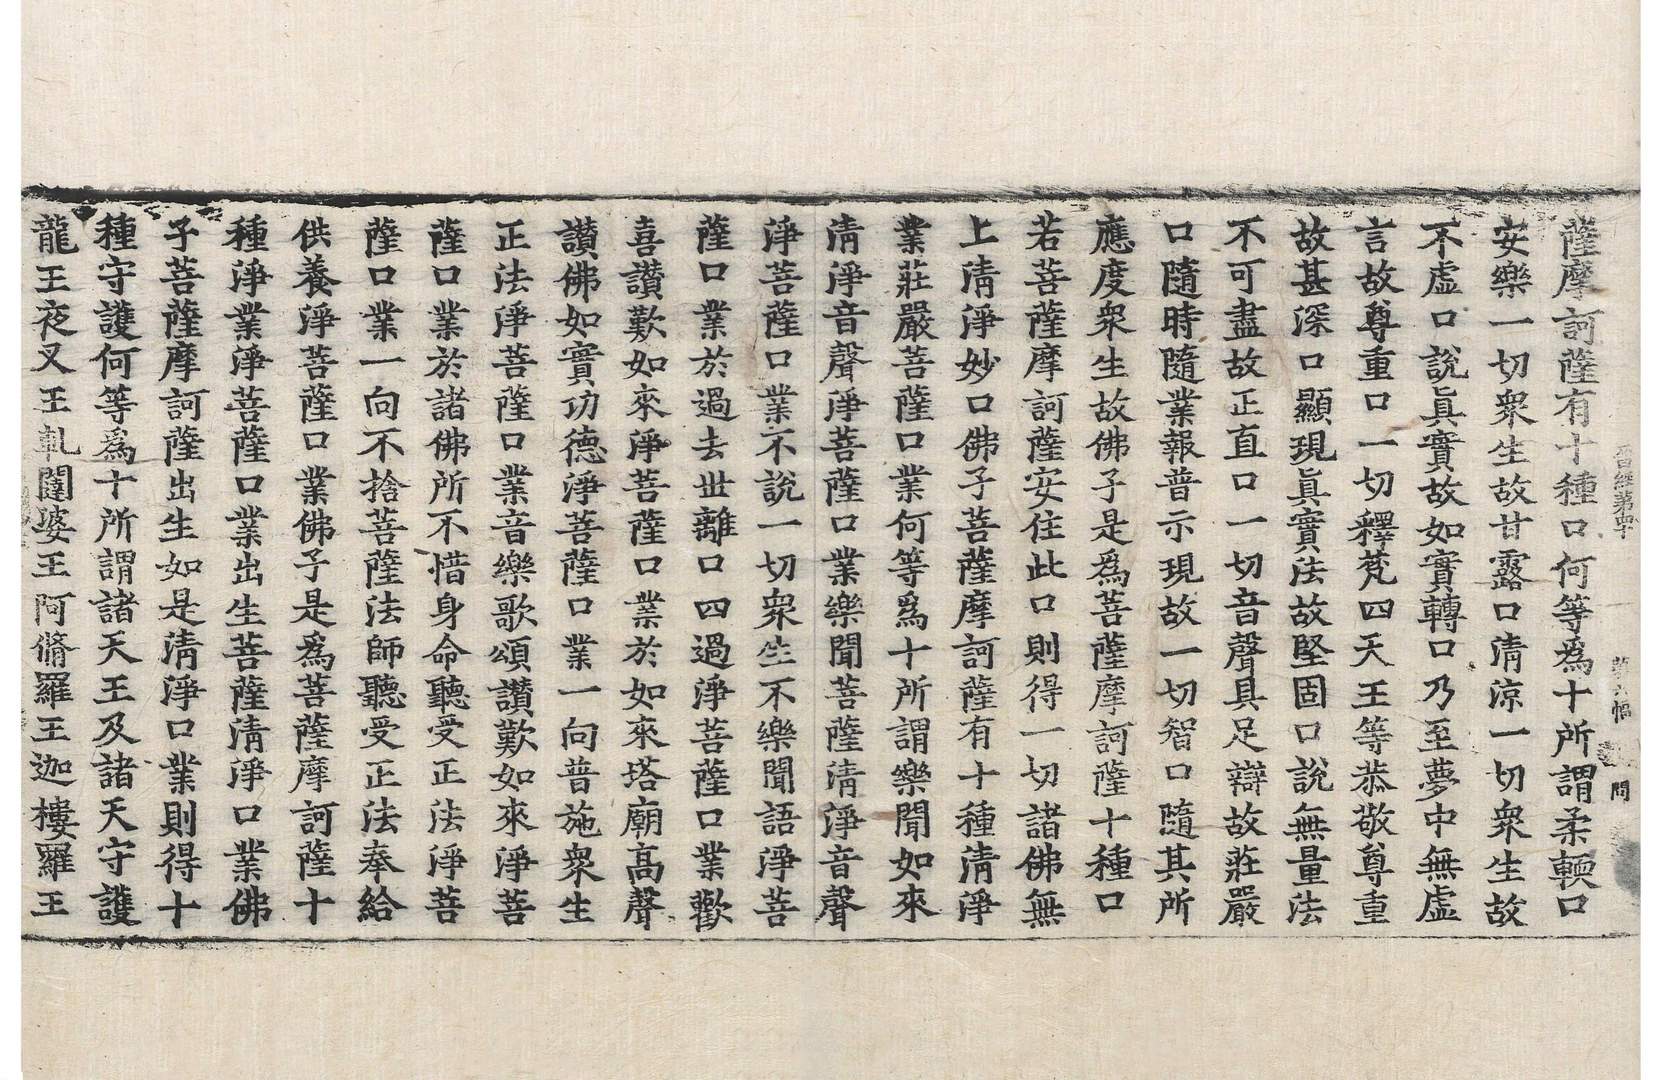 晉經第四十 第八幅 問
薩摩訶薩有十種口何等爲十所謂柔輭口
安樂一切衆生故甘露口清涼一切衆生故
不虛口說眞實故如實轉口乃至夢中無虛
言故尊重口一切釋梵四天王等恭敬尊重
故甚深口顯現眞實法故堅固口說無量法
不可盡故正直口一切音聲具足辯故莊嚴
口隨時隨業報普示現故一切智口隨其所
應度衆生故佛子是爲菩薩摩訶薩十種口
若菩薩摩訶薩安住此口則得一切諸佛無
上清淨妙口佛子菩薩摩訶薩有十種清淨
業莊嚴菩薩口業何等爲十所謂樂聞如來
清淨音聲淨菩薩口業樂聞菩薩清淨音聲
淨菩薩口業不說一切衆生不樂聞語淨菩
薩口業於過去世離口四過淨菩薩口業歡
喜讃歎如來淨菩薩口業於如來塔廟高聲
讃佛如實功德淨菩薩口業一向普施衆生
正法淨菩薩口業音樂歌頌讃歎如來淨菩
薩口業於諸佛所不惜身命聽受正法淨菩
薩口業一向不捨菩薩法師聽受正法奉給
供養淨菩薩口業佛子是爲菩薩摩訶薩十
種淨業淨菩薩口業出生菩薩清淨口業佛
子菩薩摩訶薩出生如是清淨口業則得十
種守護何等爲十所謂諸天王及諸天守護
龍王夜叉王乹闥婆王阿脩羅王迦樓羅王